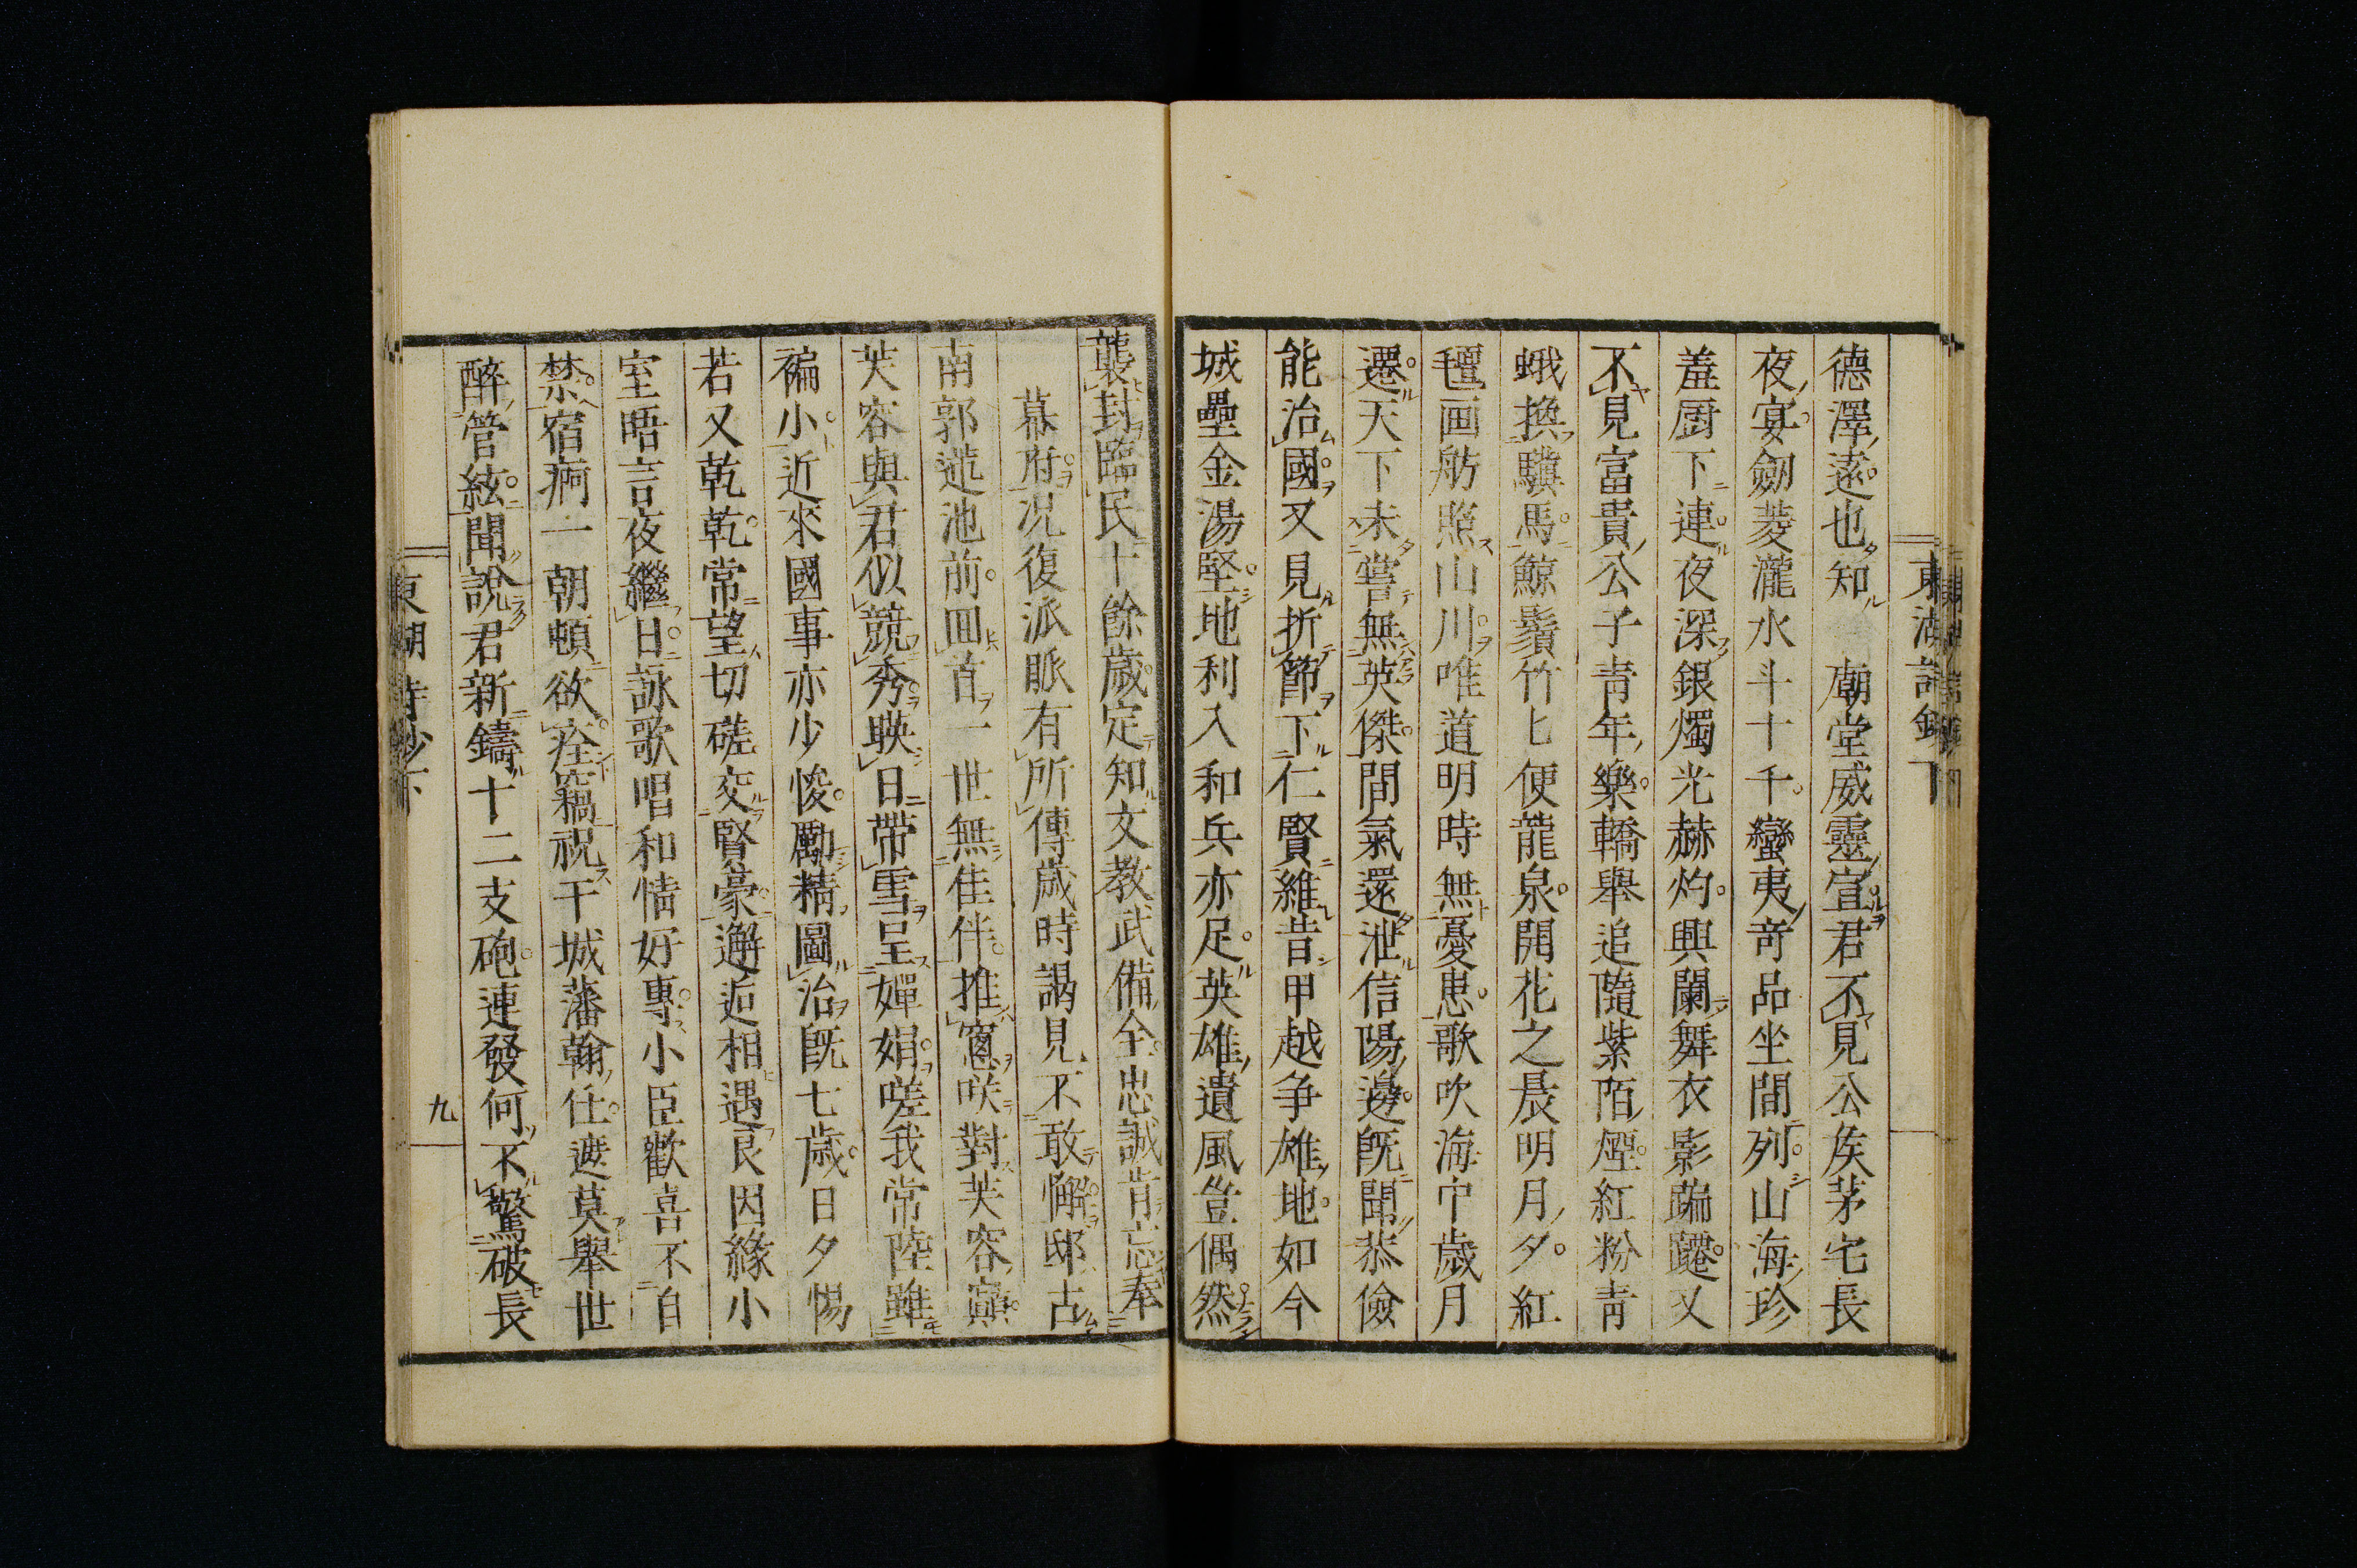 東湖詩鈔下
德澤遠也知　廟堂威靈宣君不見公矦茅宅長
夜宴劒菱瀧水斗十千蠻夷奇品坐間列山海珍
羞厨下連夜深銀燭光赫灼興闌舞衣影蹁躚又
不見富貴公子靑年樂轎舉追隨紫陌煙紅粉靑
蛾換驥馬鯨鬚竹匕便龍泉開花之晨明月夕紅
氊画舫照山川唯道明時無憂患歌吹海中歲月
遷天下未嘗無英傑間氣還泄信陽邊旣聞恭儉
能治國又見折節下仁賢維昔甲越争雄地如今
城壘金湯堅地利入和兵亦足英雄遺風豈偶然
襲封臨民十餘歲定知文教武備全忠誠肯忘奉
幕府况復派脈有所傳歲時謁見不敢懈邸古
南郭遊池前回首一世無佳伴推窻咲對芙容巓
芙容與君似競秀映日帶雪呈嬋娟嗟我常陸雖
褊小近來國事亦少悛勵精圖治旣七歲日夕惕
若又乾乾常望切磋交賢豪邂逅相遇良因緣小
室晤言夜繼日詠歌唱和情好專小臣歡喜不自
禁宿痾一朝頓欲痊竊祝干城藩翰任遮莫舉世
醉管絃聞說君新鑄十二支砲連發何不驚破長
東湖詩鈔下
九